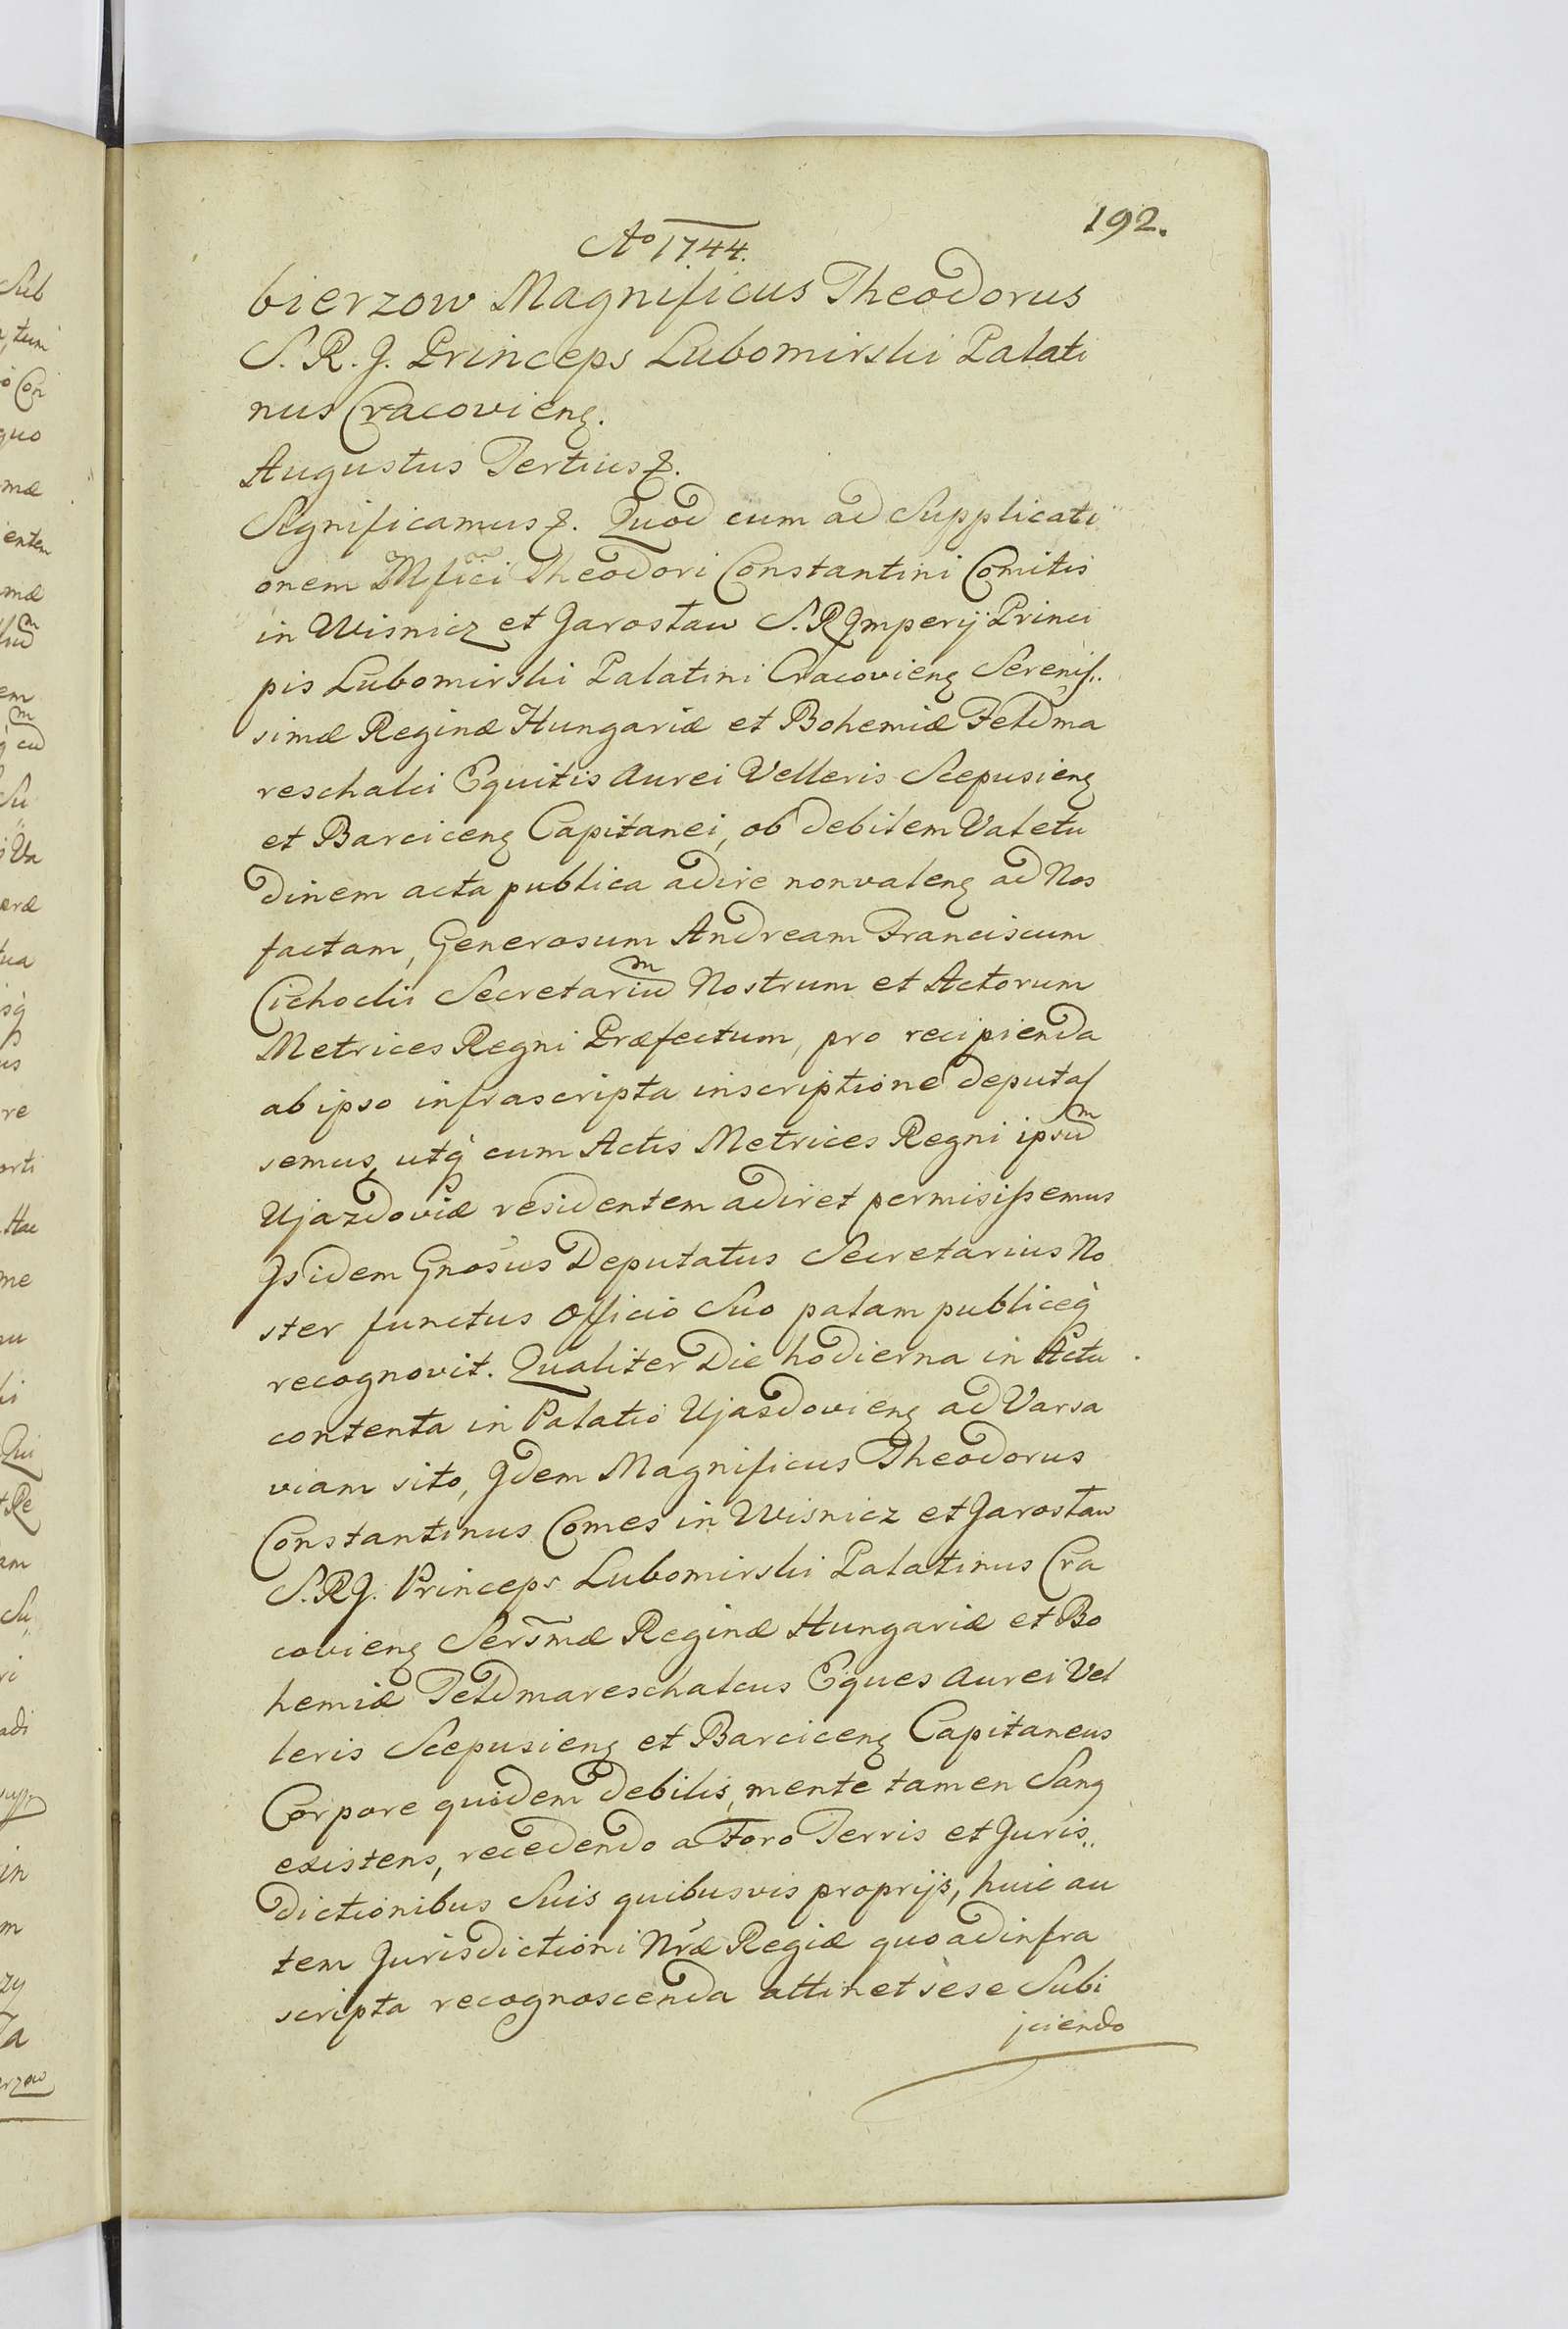 192.
Aº 1744.
bierzow Magnificus Theodorus
S. R. J. Princeps Lubomirski Palati
nus Cracovieng.
Augustus Tertius &.
Significamus &. Quod cum ad Supplicati
onem Mfici Theodori Constantini Comitis
in Wisnicz et Jarosław S. R Jmperij Princi
pis Lubomirski Palatini Cracovieng Serenis..
simæ Reginæ Hungariæ et Bohemiæ Feldma
reschalci Equitis Aurei Velleris Scepusieng
et Barciceng Capitanei, ob debilem Valetu
dinem acta publica adire nonvaleng ad Nos
factam, Generosum Andream Franciscum
Cichocki Secretariũ Nostrum et Actorum
Metrices Regni Præfectum, pro recipienda
ab ipso infrascripta inscriptione deputas
semus, utq̀ cum Actis Metrices Regni ipsũ
Ujazdoviæ residentem adiret permisissemus
Js idem Gnosus Deputatus Secretarius No
ster functus Officio Suo palam publiceq̀
recognovit. Qualiter Die hodierna in Actu
contenta in Palatio Ujazdovieng ad Varsa
viam sito, Jdem Magnificus Theodorus
Constantinus Comes in Wisnicz et Jarosław
S. R J. Princeps Lubomirski Palatinus Cra
covieng Sersmæ Reginæ Hungariæ et Bo
hemiæ Feldmareschalcus Eques Aurei Vel
leris Scepusieng et Barciceng Capitaneus
Corpore quidem debilis, mente tamen Sang
existens, recedendo a Foro Terris et Juris..
dictionibus Suis quibusvis proprijs, huic au
tem Jurisdictioni Nræ Regiæ quo ad infra
scripta recognoscenda attinet sese Subi
jciendo